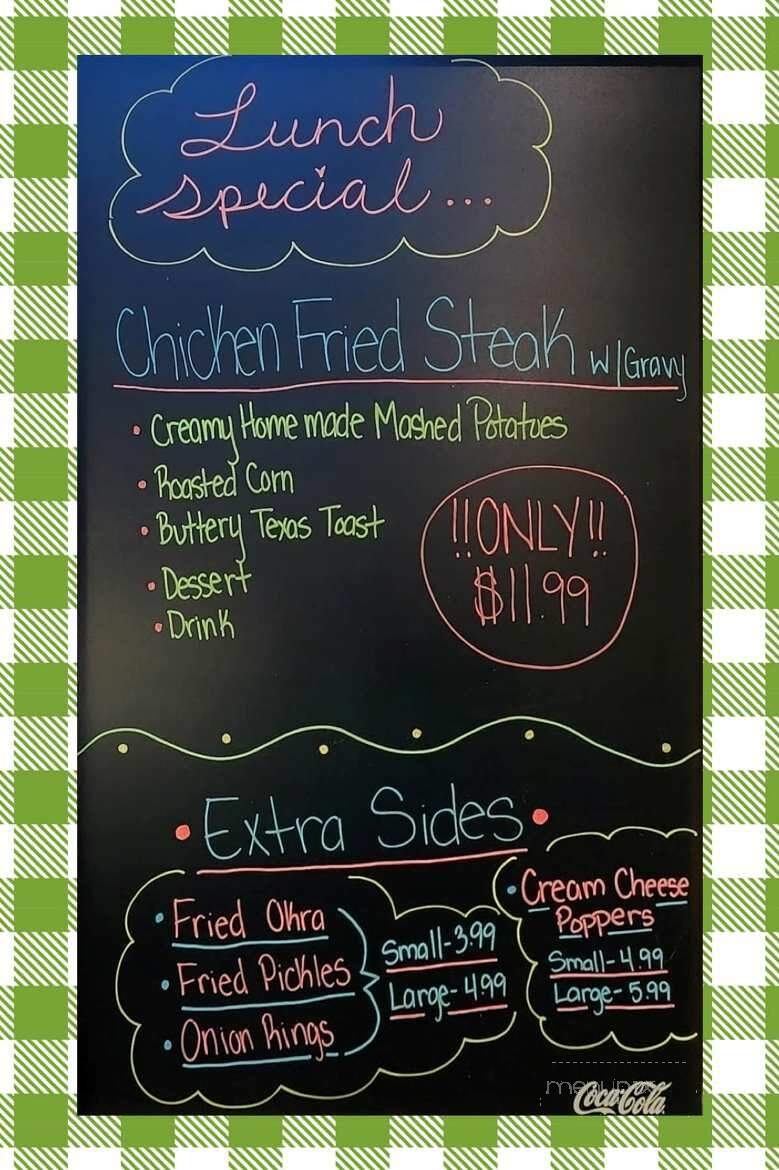 Lunch
special...
Chicken Fried Steak w/Gravy
• Creamy Homemade Mashed Potatoes
• Roasted Corn
• Buttery Texas Toast
• Dessert
• Drink
!!ONLY!!
$11.99
• Extra Sides •
• Fried Okra
• Fried Pickles
• Onion Rings
Small-3.99
Large-4.99
• Cream Cheese
Poppers
Small-4.99
Large-5.99
Coca-Cola